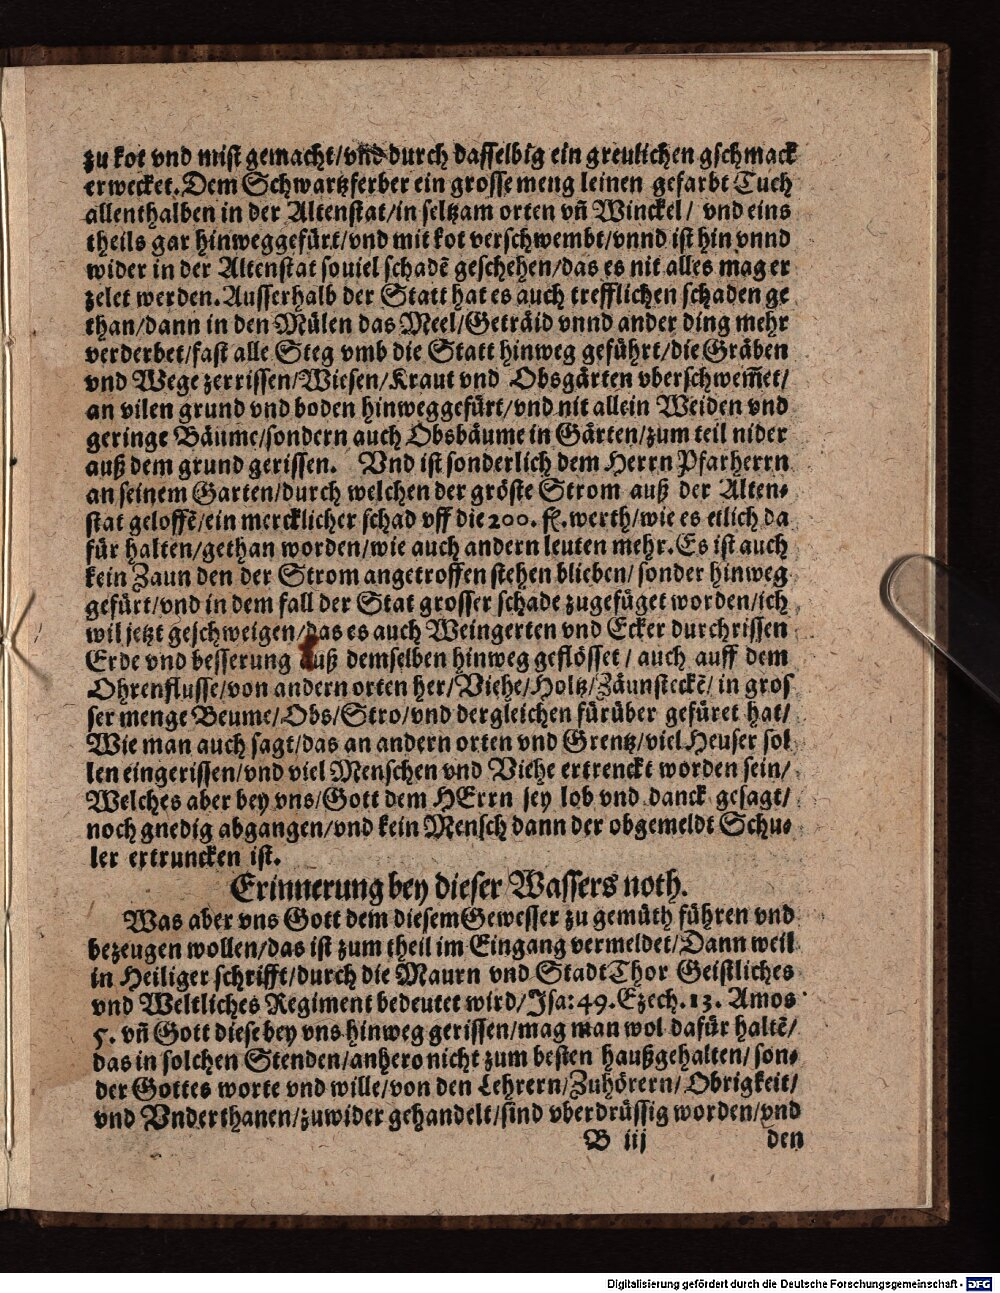 zu kot vnd mist gemacht/vnd durch dasselbig ein greulichen gschmack
erwecket. Dem Schwartzferber ein grosse meng leinen gefarbt Tuch
allenthalben in der Altenstat/in seltzam orten vñ Winckel/ vnd eins
theils gar hinweggefürt/vnd mit kot verschwembt/vnnd ist hin vnnd
wider in der Altenstat souiel schadẽ geschehen/das es nit alles mag er
zelet werden. Ausserhalb der Statt hat es auch trefflichen schaden ge
than/dann in den Mülen das Meel/Geträid vnnd ander ding mehr
verderbet/fast alle Steg vmb die Statt hinweg geführt/die Gräben
vnd Wege zerrissen/Wiesen/Kraut vnd Obsgärten vberschwem̃et/
an vilen grund vnd boden hinweggefürt/vnd nit allein Weiden vnd
geringe Bäume/sondern auch Obsbäume in Gärten/zum teil nider
auß dem grund gerissen. Vnd ist sonderlich dem Herrn Pfarherrn
an seinem Garten/durch welchen der gröste Strom auß der Alten-
stat geloffẽ/ein mercklicher schad vff die 200. fl. werth/wie es etlich da
für halten/gethan worden/wie auch andern leuten mehr. Es ist auch
kein Zaun den der Strom angetroffen stehen blieben/ sonder hinweg
gefürt/vnd in dem fall der Stat grosser schade zugefüget worden/ich
wil jetzt geschweigen/das es auch Weingerten vnd Ecker durchrissen
Erde vnd besserung auß demselben hinweg geflösset/ auch auff dem
Ohrenflusse/von andern orten her/Viehe/Holtz/Zäunsteckẽ/ in gros
ser menge Beume/Obs/Stro/vnd dergleichen fürüber gefüret hat/
Wie man auch sagt/das an andern orten vnd Grentz/viel Heuser sol
len eingerissen/vnd viel Menschen vnd Viehe ertrenckt worden sein/
Welches aber bey vns/Gott dem HErrn sey lob vnd danck gesagt/
noch gnedig abgangen/vnd kein Mensch dann der obgemeldt Schu-
ler ertruncken ist.
Erinnerung bey dieser Wassers noth.
Was aber vns Gott dem diesem Gewesser zu gemüth führen vnd
bezeugen wollen/das ist zum theil im Eingang vermeldet/Dann weil
in Heiliger schrifft/durch die Maurn vnd Stadt Thor Geistliches
vnd Weltliches Regiment bedeutet wird/Jsa: 49. Ezech. 13. Amos
5. vñ Gott diese bey vns hinweg gerissen/mag man wol dafür haltẽ/
das in solchen Stenden/anhero nicht zum besten haußgehalten/ son-
der Gottes worte vnd wille/von den Lehrern/Zuhörern/ Obrigkeit/
vnd Vnderthanen/zuwider gehandelt/sind vberdrüssig worden/vnd
B iij den
Digitalisierung gefördert durch die Deutsche Forschungsgemeinschaft - DFG